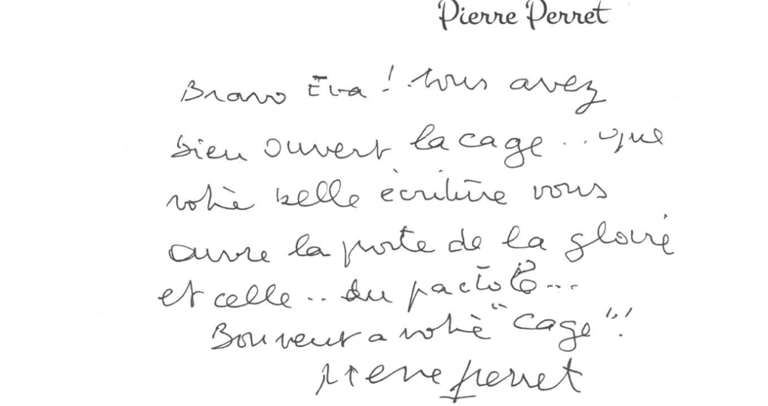 Pierre Perret
Bravo Eva ! Vous avez
bien ouvert la cage .. que
votre belle écriture vous
ouvre la porte de la gloire
et celle .. du pactole...
Bon vent a votre "cage"!
Pierre Perret